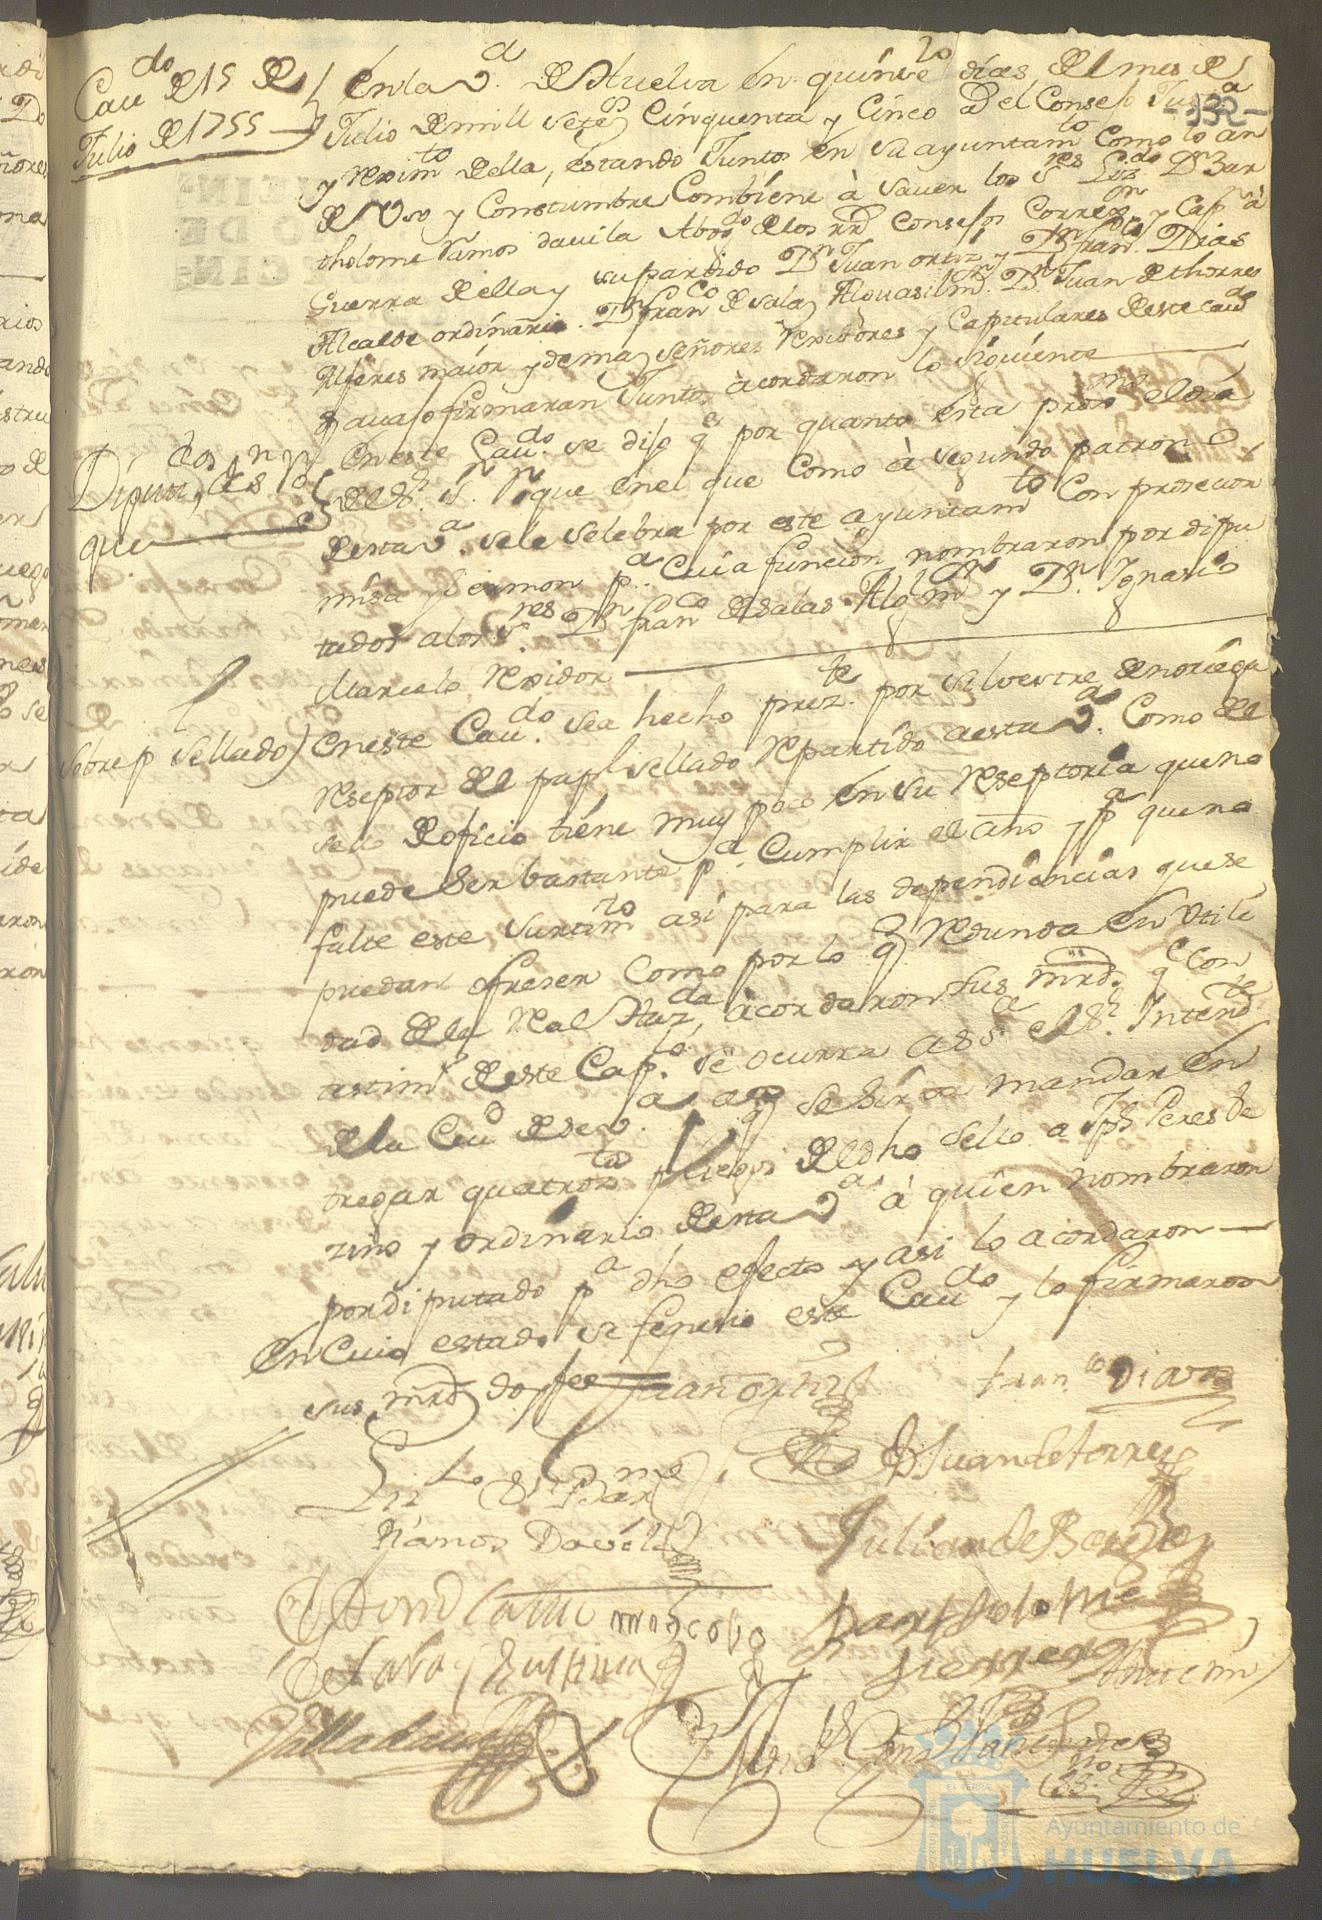 Cavdo de 15 de
Julio de 1755
-132-
En la Va. de Huelva en quince dias del mes de
Julio de mill setes. Cinquenta y Cinco as. el Consejo Justa.
y Reximto della, estando Juntos en su ayuntamto como lo an
de Uso y Constumbre Combiene à saver los Sres Lizdo Dn Bar
tholome Ramos davila Abogdo de los rrs. Consejos Corregor y Capn à
Guerra de ella y su partido Dn Juan ortiz y Dn Franco Dias
Alcalde ordinario. Dn Franco de salas Alguasil mr. Dn Juan de thorres
Alferes maior y demas Señores Rexidores y Capitulares de este Cavdo
q avajo firmaran Juntos acordaron lo siguiente
Diputdos, des Rn Ro
que
En este Cavdo. se dijo qe por quanto esta proxmo el dia
del Sr. Sn. Roque en el que como à segundo patrono
desta Va. sele selebra por este ayuntamto con prosecion
misa y sermon pa. cuia funcion nombraron por dipu
tados a los Sres. Dn Franco de salas Algl mr. y Dn. Ignasio
Marcelo Rexidor
sobre p sellado
En este Cavdo. sea hecho prezte. por silvestre de noriega
Reseptor del papl sellado Repartido aesta Va. Como del
sello de oficio tiene muy poco en su Reseptoria que no
puede ser bastante pa. Cumplir el año y pa que no
falte este surtimto asi para las dependiencias que se
puedan ofreser como por lo q Redunda en Utili
dad de la Real Hazda, acordaron sus mrds. qe con
testimo de este Capo. se ocurra a Sa. el Sr. Intendte
de la Ciud de Seva. a q se sirva mandar en
tregar quatrozto pliegos del dho sello a Jph Peres ve
zino y ordinario desta Va à quien nombraron
por diputado pa dho efecto y asi lo acordaron
En Cuio estado se feneсio este Cavdo y lo firmaron
sus mrds doy fee
Juan ortiz
Franco Dias
Lizdo Dn Barme
Ramos Davila
Dn Juan de torres
Julian de
Bartholome
moscoso